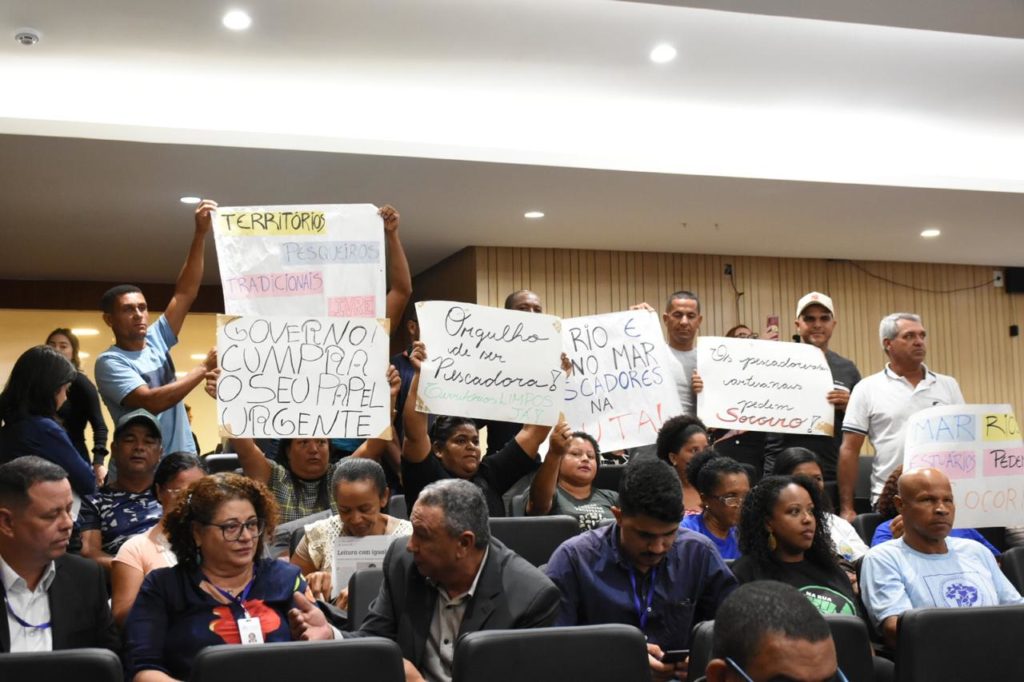 TERRITÓRIOS
PESQUEIROS
TRADICIONAIS
LIVRE
GOVERNO!
CUMPRA
O SEU PAPEL
URGENTE
Orgulho
de ser
Pescadora!
Territórios LIMPOS
JÁ!
RIO E
NO MAR
SCADORES
NA
UTA!
Os pescadores
artesanais
pedem
Socorro?
MAR RIOS
ESTUÁRIOS PEDEM
OCOR
Leitura com igual